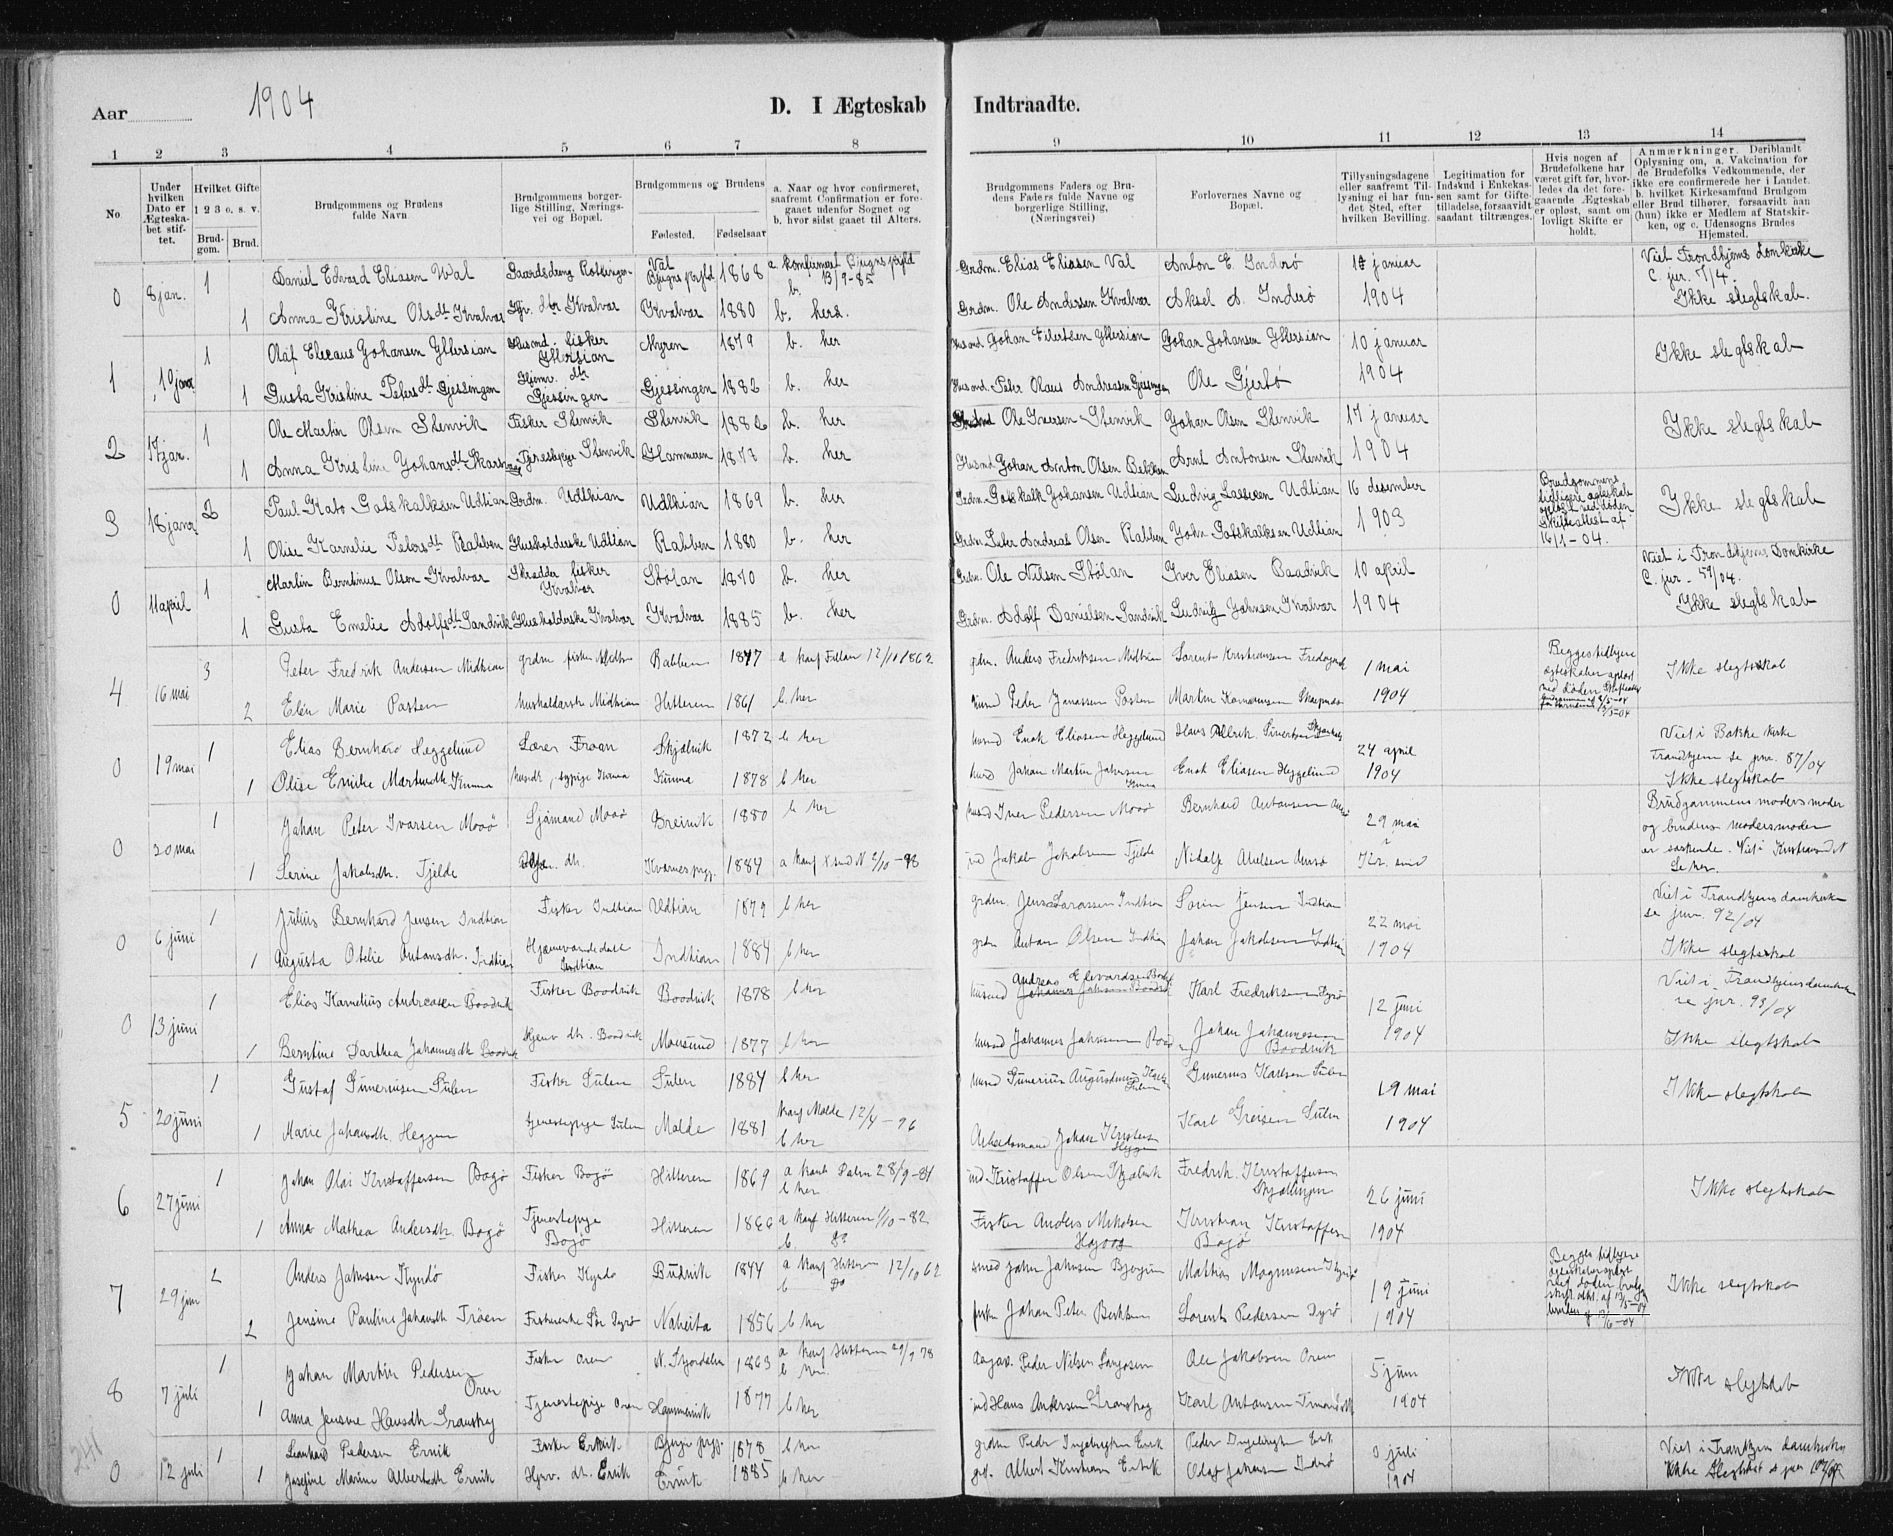 Aar 1904
D. I Ægteskab Indtraadte.
1 2 3 4 5 6 7 8 9 10 11 12 13 14
No.
Under hvilken Dato er Ægteskabet stiftet.
Hvilket Gifte 1 2 3 o. s. v.
Brudgom. Brud.
Brudgommens og Brudens fulde Navn
Brudgommens borgerlige Stilling, Næringsvei og Bopæl.
Brudgommens og Brudens
Fødested. Fødselsaar
a. Naar og hvor confirmeret, saafremt Confirmation er foregaaet udenfor Sognet og b. hvor sidst gaaet til Alters.
Brudgommens Faders og Brudens Faders fulde Navne og borgerlige Stilling, (Næringsvei)
Forlovernes Navne og Bopæl.
Tillysningsdagene eller saafremt Tillysning ei har fundet Sted, efter hvilken Bevilling.
Legitimation for Indskud i Enkekassen samt for Giftetilladelse, forsaavidt saadant tiltrænges.
Hvis nogen af Brudefolkene har været gift før, hvorledes da det foregaaende Ægteskab er opløst, samt om lovligt Skifte er holdt.
Anmærkninger. Deriblandt Oplysning om, a. Vakcination for de Brudefolks Vedkommende, der ikke ere confirmerede her i Landet. b. hvilket Kirkesamfund Brudgom eller Brud tilhører, forsaavidt han (hun) ikke er Medlem af Statskirken, og c. Udensogns Brudes Hjemsted.
0 8 jan. 1 Daniel Edvard Eliasen Val Gaardsdreng Val Bjugns prgfld 1868 a. konfirmeret Bjugns prgfld b. 13/9-85 Grdm. Elias Eliasen Val Anton E. Inderø 10 januar Viet Trondhjems Domkirke C. jur. 7/4.
1 Anna Kristine Olsdt Kvalvar Hjv. dtr Kvalvar Kvalvar 1880 b. hers. Grdm. Ole Andersen Kvalvar Aksel A. Inderø 1904 Ikke slegtskab.
1 10 janr 1 Olaf Elecaus Johansen Yttersian Husmd. fisker Yttersian Myren 1879 b. her Husmd. Johan Eilertsen Yttersian Johan Johansen Yttersian 10 januar Ikke slegtskab
1 Gusta Kristine Petersdt Gjessingen Hjemv. dtr Gjessingen Gjessingen 1882 b. her Husmd. Peter Olaus Andreasen Gjessingen Ole Gjertø 1904
2 17 jan. 1 Ole Martin Olsen Stenvik Fisker Stenvik Stenvik 1882 b. her Ole Iversen Stenvik Johan Olsen Stenvik 17 januar Ikke slegtskab
1 Anna Kristine Johansdt Tjenestepige Stenvik Hammeren 1878 b. her Husmd Johan Anton Olsen Bekken Arnt Antonsen Stenvik 1904
3 18 janr 2 Paul Kato Gotskalksen Udtian Grdm. Udtian Udtian 1869 b. her Grdm. Gotskalk Johansen Udtian Ludvig Lassen Udtian 16 desember Brudgommens tidligere ægteskab opløst ved døden Skifteattest af 16/1-04. Ikke slegtskab
1 Olise Karnelie Petersdt Rabben Husholderske Udtian Rabben 1880 b. her Grdm Peter Andreas Olsen Rabben John Gotskalksen Udtian 1903
0 11 april 1 Martin Berntinus Olsen Kvalvar Skrædder fisker Kvalvar Stølan 1870 b. her Grdm. Ole Nilsen Stølan Iver Eliasen Baadvik 10 april Viet i Trondhjems Domkirke C. jur. 59/04.
1 Gusta Emelie Adolfsdt Sandvik Husholderske Kvalvar Kvalvar 1885 b. her Grdm. Adolf Danielsen Sandvik Ludvig Johnsen Kvalvar 1904 Ikke slegtskab
4 16 mai 3 Peter Fredrik Andersen Midtsian grdm fisker Rabben 1847 a konf Fillan 12/10 1862 grdm. Anders Fredriksen Midtsian Lorents Kristiansen 1 mai Begges tidligere ægteskaber opløst ved døden Ikke slegtskab
2 Elen Marie Pasten husholderske Midtsian Hitteren 1861 b. her husmd Peder Jonassen Pasten 1904
0 19 mai 1 Elias Bernhard Heggelund Lærer Froan Skjælvik 1872 b her husmd Enok Eliasen Heggelund 24 april Viet i Bakke kirke Trondhjem se jnr. 87/04
1 Olise Emilie Martinsdt. Kunna Kunna 1878 b her husmd Johan Martin Johnsen Kunna Enok Eliasen Heggelund 1904 Ikke slegtskab
0 20 mai 1 Johan Peter Ivarsen Moø Sjømand Moø Breivik 1880 b her husmd Iver Pedersen Moø Bernhard Antonsen 29 mai Brudgommens moders moder og brudens modersmoder er søskende. Viet i Kristiansund N
1 Serine Jakobsdt. Tjelde dt. Kvernes prgj. 1884 a konf X sund N 2/10-98 ind Jakob Jakobsen Tjelde Kr. sund Se her.
0 6 juni 1 Julius Bernhard Jensen Indtian Fisker Indtian Udtian 1879 b her grdm. Jens Indtian Sørin Jensen Indtian 22 mai Viet i Trondhjems domkirke se jnr. 92/04
1 Augusta Otelie Antonsdt. Indtian Hjemmeværende datter Indtian Indtian 1884 b her grdm Anton Olsen Indtian Johan Jakobsen Indtian 1904 Ikke slegtskab
0 13 juni 1 Elias Karnelius Andreasen Boodvik Fisker Boodvik Boodvik 1878 b her husmd Andreas Karl Fredriksen Dyrø 12 juni Viet i Trondhjems domkirke se jnr. 93/04
1 Berntine Dorthea Johannesdt Boodvik hjemv dt. Boodvik Mausund 1877 b her husmd Johannes Johnsen Johan Johannesen Boodvik 1904 Ikke slegtskab
5 20 juni 1 Gustaf Sunerinsen Sulen Fisker Sulen Sulen 1884 b her Sulen Karlsen Sulen 19 mai Ikke slegtskab
1 Marie Johansdt. Heggen Tjenestepige Sulen Molde 1881 konf Molde 12/4-96 b her Arbeidsmand Johan Kristensen Heggen Karl Greisen Sulen 1904
6 27 juni 1 Johan Olai Kristoffersen Bogø Fisker Bogø Hitteren 1869 a konf 28/9-84 b her ind Kristoffer Olsen Skjølvik Fredrik Kristoffersen 26 juni Ikke slegtskab
1 Anna Mathea Andersdt. Bogø Tjenestepige Bogø Hitteren 1866 a konf Hitteren 1/10-82 Fisker Anders Mikalsen Kristian Kristoffersen Bogø 1904
7 29 juni 2 Anders Johnsen Kyndø Fisker Budvik 1844 a konf Hitteren 12/10 62 Mathias Magnusen 19 juni Begges tidligere ægteskaber opløst ved døden Ikke slegtskab
2 Jensine Pauline Johansdt Troen Nabeita 1856 b her fisker Johan Peter Berntsen Lorents Pedersen Dyrø 1904
8 7 juli 1 Johan Martin Pedersen Oren Fisker Oren N. Stjørdalen 1863 a konf Hitteren 29/9 78 b her Peder Nilsen Ole Jakobsen Oren 5 juni Ikke slegtskab
1 Anna Jensine Hansdt. Granskog Tjenestepige Oren Hammervik 1877 b her ind Hans Andersen Granskog Karl Antonsen 1904
0 12 juli 1 Leonhard Pedersen Ervik Fisker Ervik Bjugn prgj. 1878 b her grdm Peder Ingebrigtsen Ervik Peder Ingebrigtsen Ervik 3 juli Viet i Trondhjem domkirke
1 Josefine Marine Albertsdt Ervik Hjv. dt. Ervik Ervik 1885 b her Albert Kristian Ervik Odaf Johansen Inderø 1904 Ikke slegtskab
241